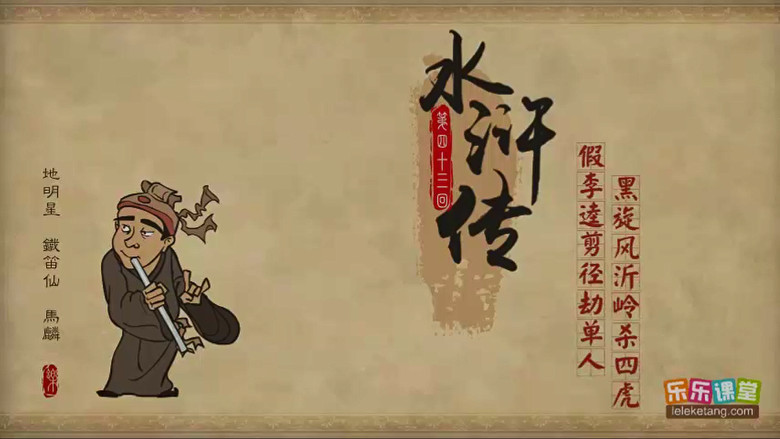 水浒传
第四十三回
假李逵剪径劫单人
黑旋风沂岭杀四虎
地明星 鐵笛仙 馬麟
乐乐课堂
leleketang.com